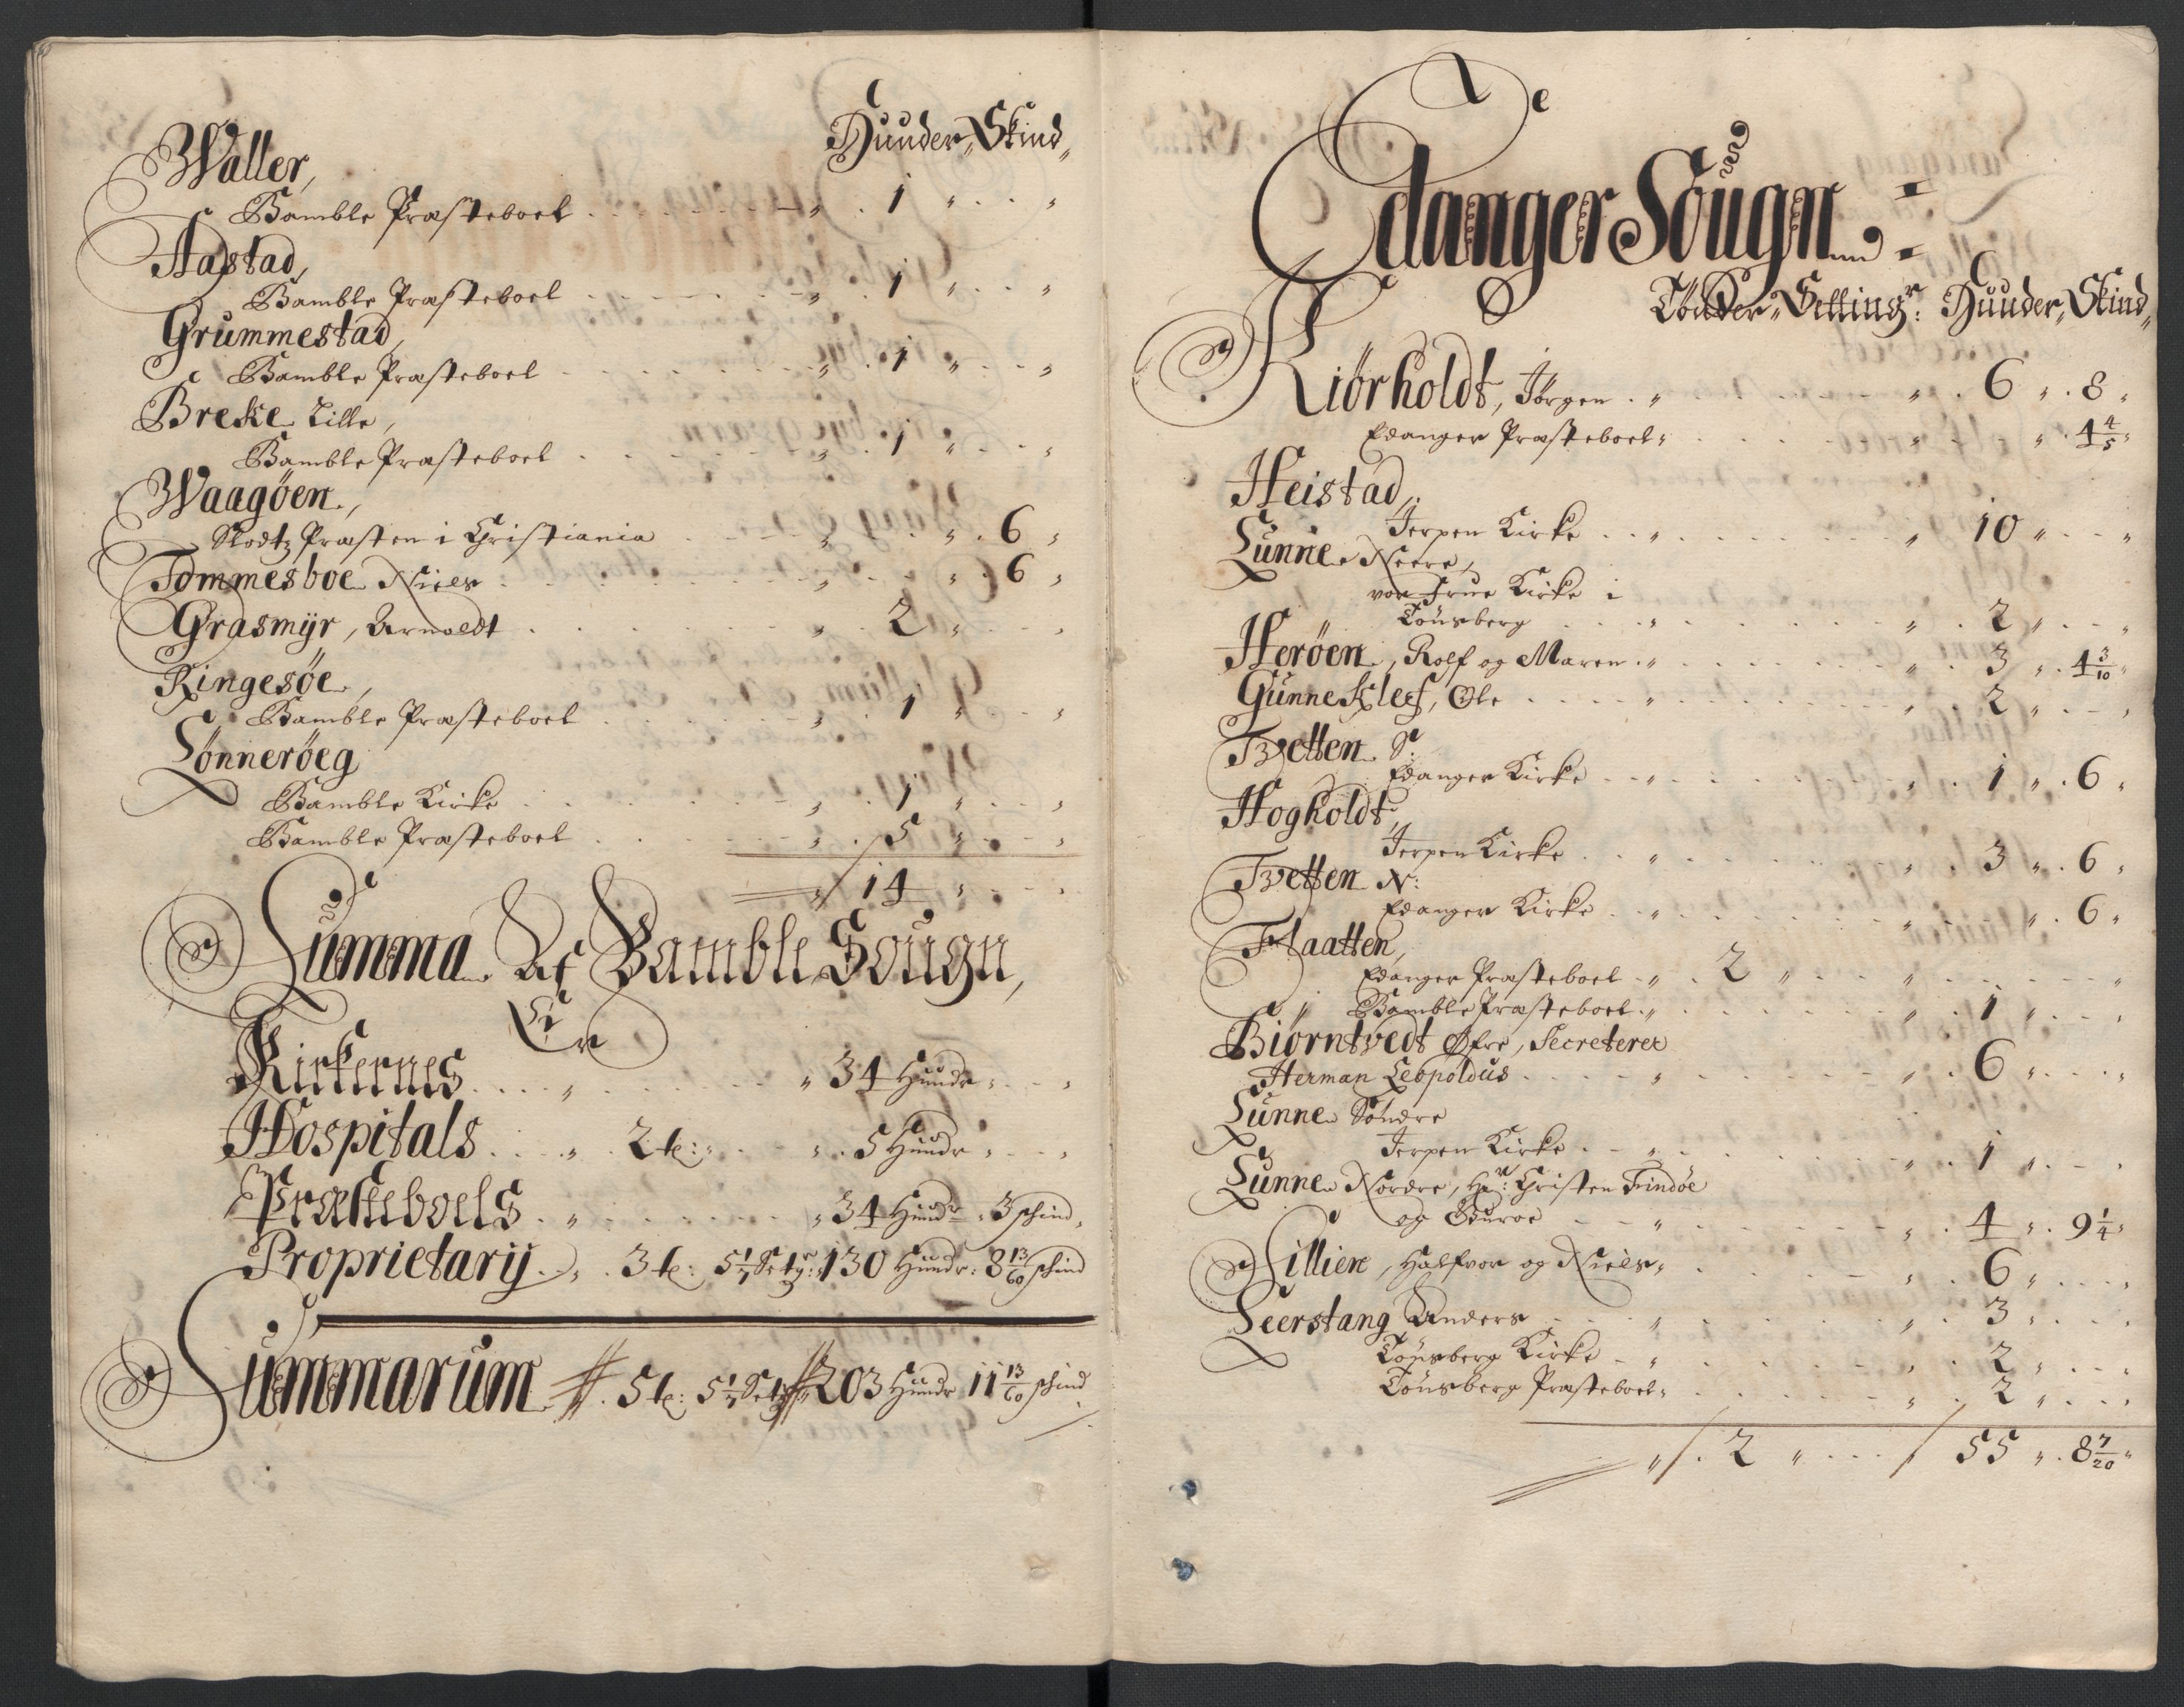 Huuder, Skind,
Waller,
Bamble Præsteboel . . . „ . 1 „ . . „
Aastad,
Bamble Præsteboel . . . „ . 1 „ . . „
Grummestad,
Bamble Præsteboel . . . „ . 1 „ . . „
Breke Lille,
Bamble Præsteboel . . . „ . 1 „ . . „
Waagöen,
Slodtz Præsten i Christiania . . . „ . . „ . 6 „
Tommesboe Niels . . . „ . . „ . 6 „
Grasmÿr, Arnoldt . . . „ . 2 „ . . „
Ringesöe,
Bamble Præsteboel . . . „ . 1 „ . . „
Lönneröeg
Bamble Kirke . . . „ . 1 „ . . „
Bamble Præsteboel . . . „ . 5 „ . . „
„ / 14 „ . . „
Summa Af Bamble Sougn,
Er
Kirkernes . . . „ . . . „ 34 Hunde „ . . „
Hospitals . . . „ . 2 t: „ . . „ . 5 Hunde „ . . „
Præsteboels . „ . . . „ 34 Hundr „ 3 schind,
Proprietarij . „ . 3 t: 5 1/7 Setgr: 130 Hundr: 8 13/60 schind
Summarum // . 5 t: 5 1/7 Setgr // 203 Hunde 11 13/60 schind
Edanger Sougn
Tönder, Setting: Huuder, Skind,
Kiörholdt, Jörgen . „ . . . „ . 6 „ . 8 „
Edanger Præsteboel „ . . . „ . . „ . 4 4/5 „
Heistad,
Jerpen Kirke . . „ . . . „ 10 „ . . „
Lunne Neere,
vor Frue Kirke i
Tönsberg . . . „ . . . „ . 2 „ . . „
Heröen, Rolf og Maren . „ . . . „ . 3 „ . 4 3/10 „
Gunneklef, Ole . . . „ . . . „ . 2 „ . . „
Tvetten S:
Edanger Kirke . . „ . . . „ . 1 „ . 6 „
Hogholdt,
Jerpen Kirke . . „ . . . „ . 3 „ . 6 „
Tvetten N:
Edanger Kirke . . „ . . . „ . . „ . 6 „
Flaatten,
Edanger Præsteboel . „ . 2 „ . . „ . . . „
„ Bamble Præsteboel . „ . . . „ . 1 „ . . „
Biörntvedt Øfre, Secreterer
Herman Leopoldus . . . „ . . . „ . 6 „ . . „
Lunne Söndre
Jerpen Kirke . . „ . . . „ . 1 „ . . „
Lunne Nordre, Hr: Christen Findöe
og Guroe . . „ . . . „ . 4 „ . 9 1/4 „
Lillien, Halfvor og Niels „ . . . „ . 6 „ . . „
Leerstang Anders . . . „ . . . „ . 3 „ . . „
Tönsberg Kirke . „ . . . „ . 2 „ . . „
Tönsberg Præsteboel „ . . . „ . 2 „ . . „
„ / . 2 „ . . . / 55 „ . 8 7/20 „